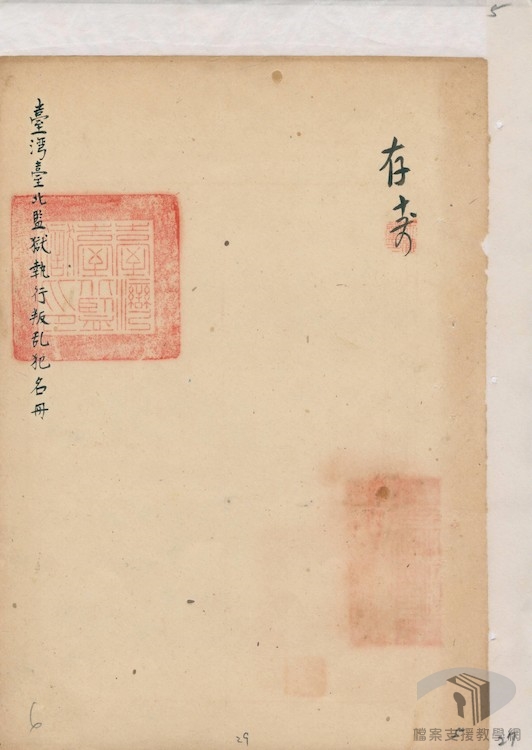 5
存查
臺灣臺北監獄執行叛乱犯名冊
6
29
檔案支援教學網